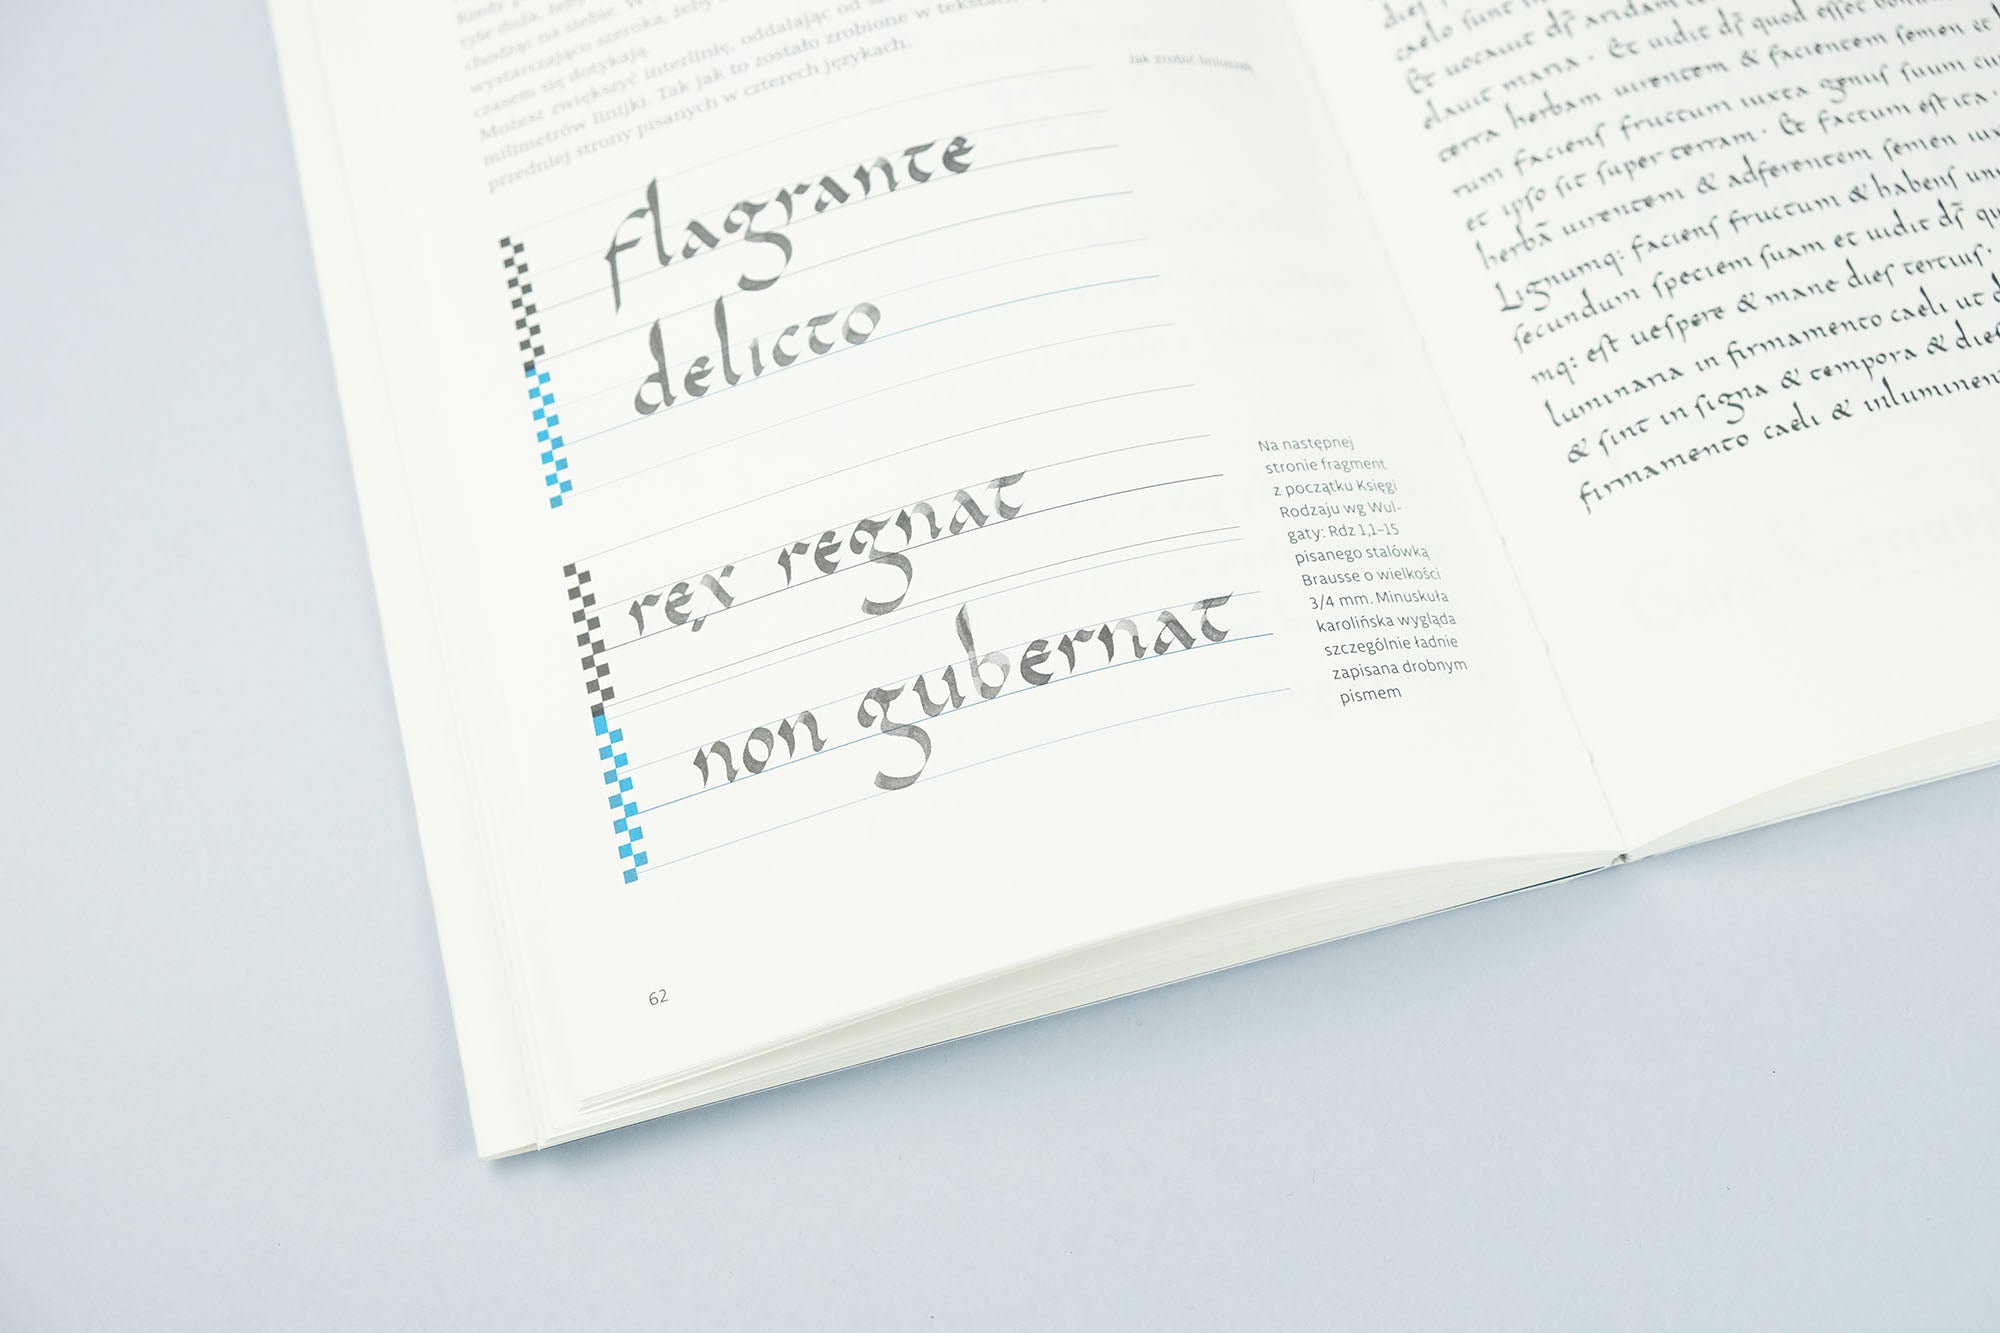 tyle duża, żeby
chodząc na siebie. W
wystarczająco szeroka, żeby
czasem się dotykają.
Możesz zwiększyć interlinię, oddalając od
milimetrów linijki. Tak jak to zostało zrobione w tekstach
przedniej strony pisanych w czterech językach.
Jak zrobić liniuszek
flagrante
delicto
ręx regnat
non gubernat
Na następnej
stronie fragment
z początku Księgi
Rodzaju wg Wul-
gaty: Rdz 1,1–15
pisanego stalówką
Brausse o wielkości
3/4 mm. Minuskuła
karolińska wygląda
szczególnie ładnie
zapisana drobnym
pismem
62
caelo sunt in
Et uocauit dſ̃ aridam
elauit maria · Et uidit dſ̃ quod eſſet
terra herbam uirentem & facientem ſemen et
rum facienſ fructum iuxta genuſ ſuum
et ipſo ſit ſuper terram · Et factum eſt ita ·
herbã uirentem & adferentem ſemen
Lignumq: facienſ fructum & habenſ
ſecundum ſpeciem ſuam et uidit dſ̃
mq: eſt ueſpere & mane dieſ tertiuſ·
luminaria in firmamento caeli ut
& ſint in ſigna & tempora & dieſ
firmamento caeli & inluminent